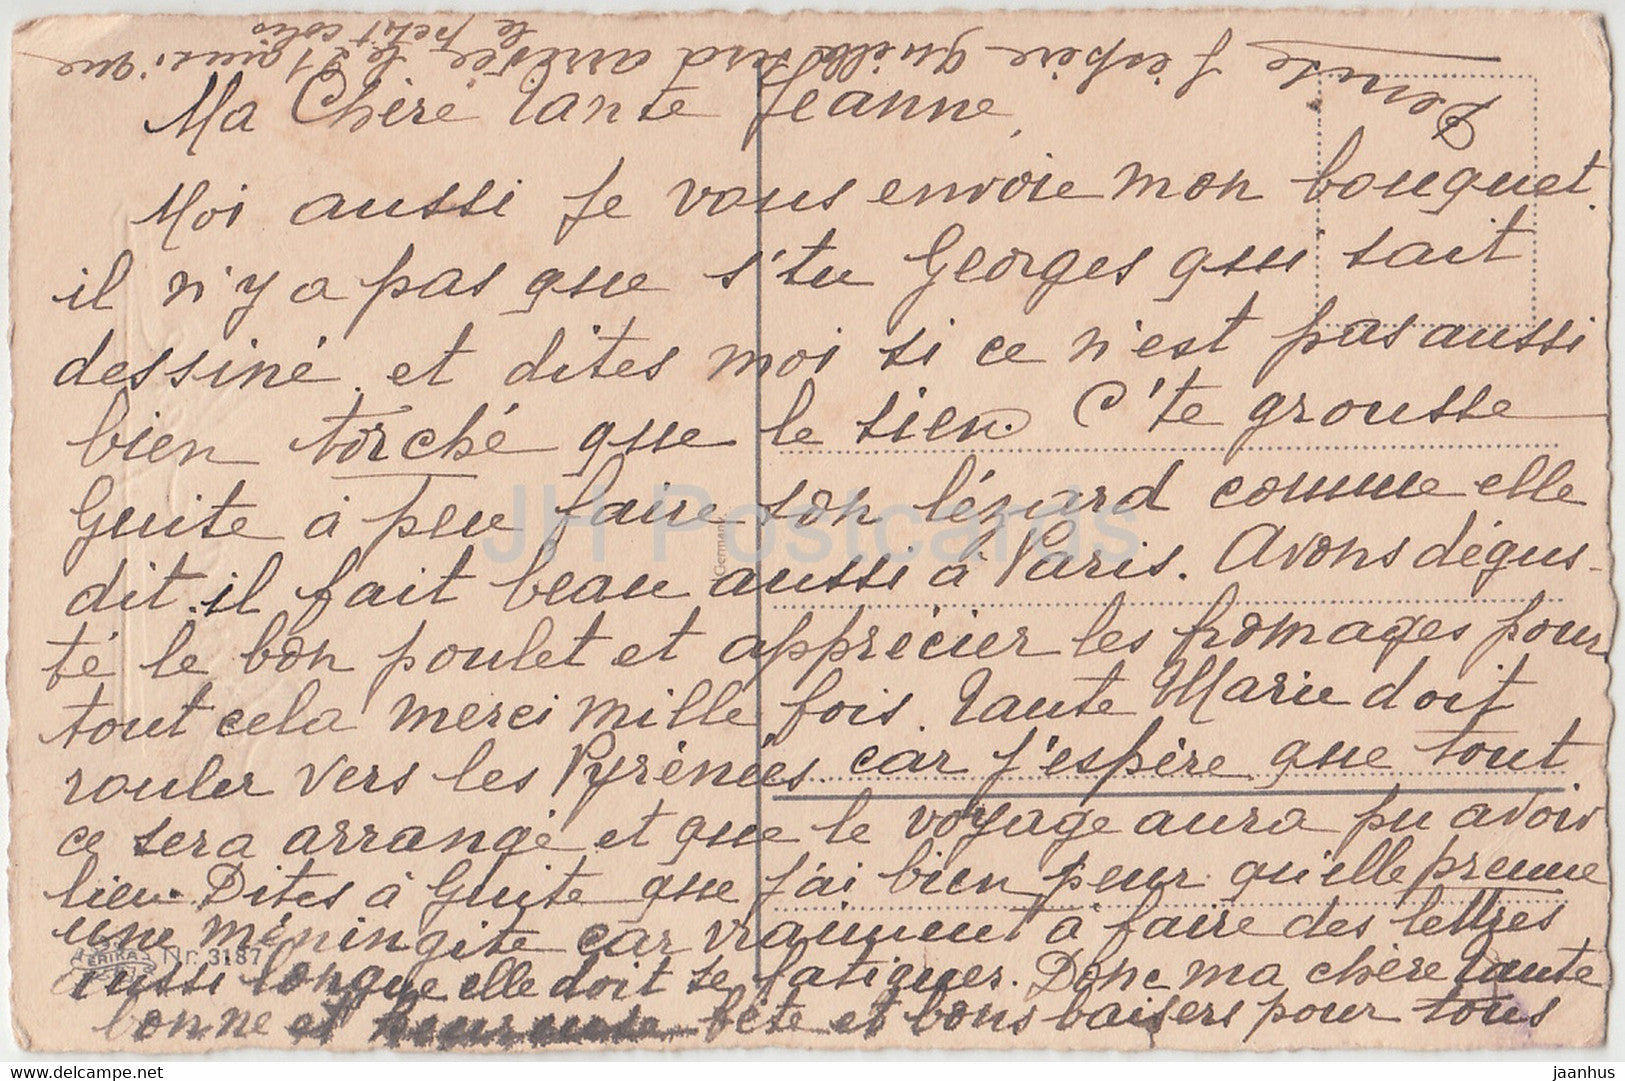 Ma Chère Tante Jeanne,
Moi aussi Je vous envoie mon bouquet.
il n'y a pas que s'tu Georges qui sait
dessiné. et dites moi si ce n'est pas aussi
bien torché que le sien. C'te grousse
Guite à peu faire son lézard comme elle
dit. il fait beau aussi à Paris. Avons dégus-
té le bon poulet et apprécier les fromages pour
tout cela merci mille fois. Tante Marie doit
rouler vers les Pyrénées car j'espère que tout
ce sera arrangé et que le voyage aura pu avoir
lieu. Dites à Guite que J'ai bien peur qu'elle prenne
une méningite car vraiment à faire des lettres
aussi longue elle doit se fatiguer. Donc ma chère Tante
bonne et fête et bons baisers pour tous
J'espère qu'elle sera arrivée le 21 ainsi que
le petit colis
Germany
ERIKA
Nr. 3187
JH Postcards
jaanhus